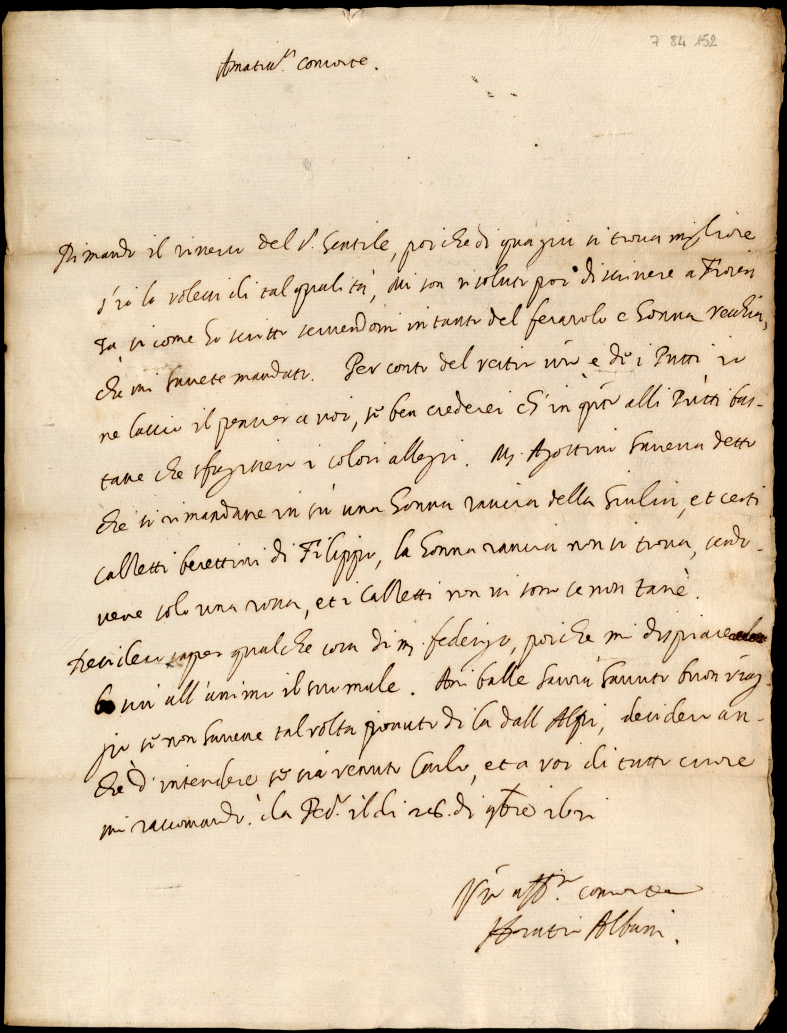 7 84 152
Amatiss.ª consorte.
Rimando il rinerso del S.r Gentile, poi che di quagiu si trova migliore
s'io lo volessi di tal qualità, mi son risoluto poi di scrivere a Fioren
za si come ho scritto servendomi in tanto del feraiolo e Sonna vecchia,
che mi havete mandato. Per conto del vestir vr̃o e de i Putti io
ne lascio il pensier a voi, se ben crederei ch' in q̃sto alli Putti bas-
tava che sfugissero i colori allegri. M. Agostino haveva detto
che si rimandava in sù una Sonna rancia della Giulia, et certi
calzetti berettini di Filippo, la Sonna rancia non si trova, sendo-
vene solo una rossa, et i calzetti non vi sono se non Tanè.
Desidero saper qualche cosa di m. federigo, poiche mi dispiace
sin all'anima il suo male. Anibale havrà havuto buon viag
gio se non haveva tal volta piovuto di la dall Alpi, desidero an-
che d'intendere se sia venuto Carlo, et a voi di tutto cuore
mi raccomando. Da il di 28. di 9bre
Vr̃o aff.mo consorte
Horatio Albani.